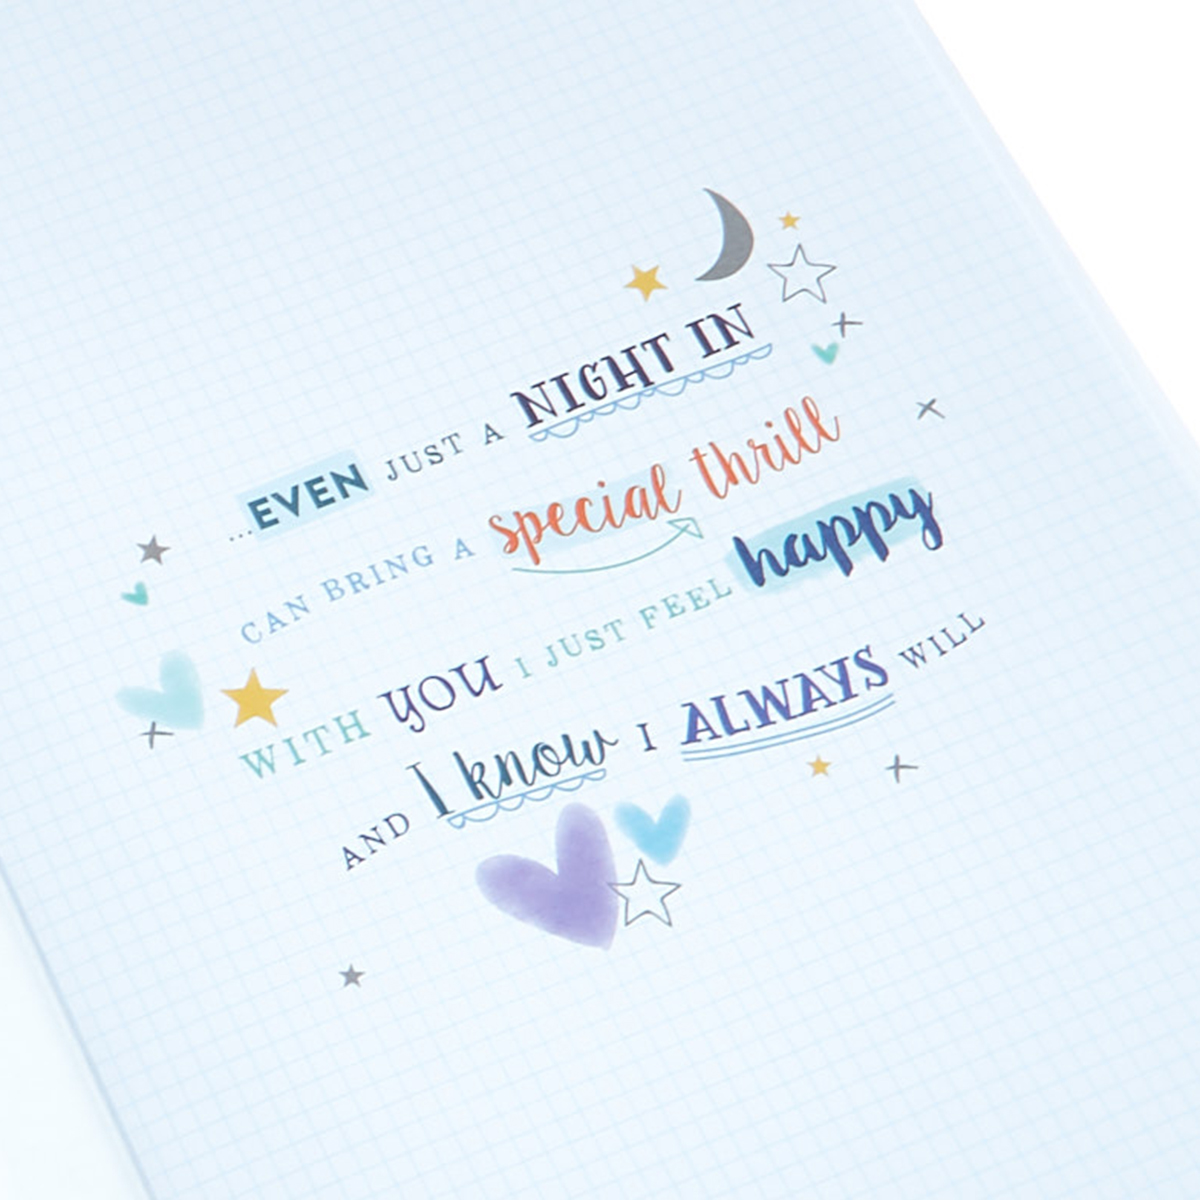 ...EVEN JUST A NIGHT IN
CAN BRING A special thrill
WITH YOU I JUST FEEL happy
AND I know I ALWAYS WILL